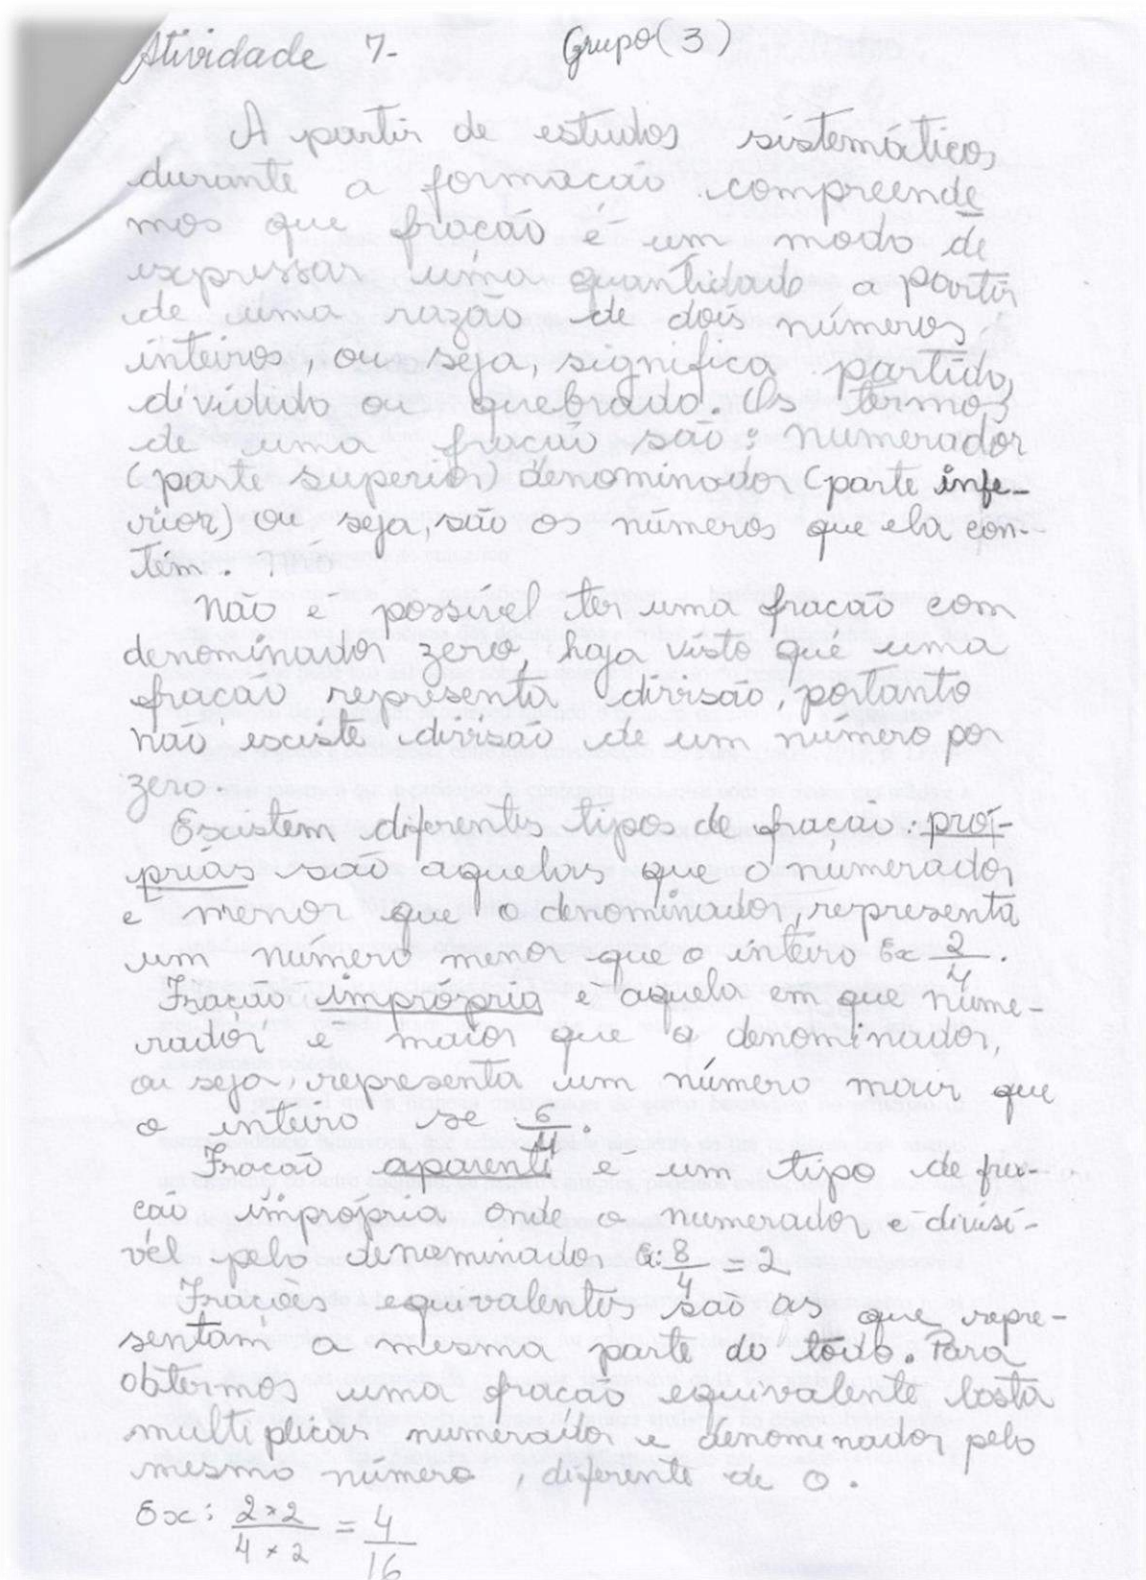 Atividade 7- Grupo (3)
A partir de estudos sistemáticos
durante a formacão compreende
mos que fracão é um modo de
expressar uma quantidade a partir
de uma razão de dois números
inteiros, ou seja, significa partido,
dividido ou quebrado. Os termos
de uma fracão são: numerador
(parte superior) denominador (parte infe-
rior) ou seja, são os números que ela con-
tém.
Não é possível ter uma fracão com
denominador zero, haja visto que uma
fracão representa divisão, portanto
não existe divisão de um número por
zero.
Existem diferentes tipos de fracão: pró-
prias são aquelas que o numerador
é menor que o denominador, representa
um número menor que o inteiro Ex 2/4.
Fracão imprópria é aquela em que nume-
rador é maior que o denominador,
ou seja, representa um número maior que
o inteiro se 6/4.
Fracão aparente é um tipo de fra-
cão imprópria onde o numerador é divisí-
vel pelo denominador E: 8/4 = 2
Fracões equivalentes são as que repre-
sentam a mesma parte do todo. Para
obtermos uma fracão equivalente basta
multiplicar numerador e denominador pelo
mesmo número, diferente de 0.
Ex: 2×2/4×2 = 4/16